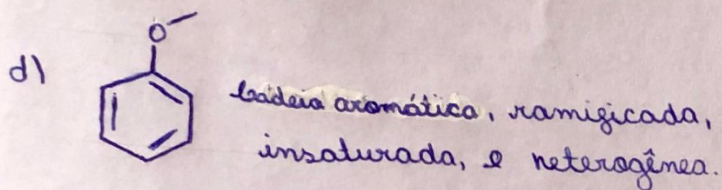 d)
O
Cadeia aromática, ramificada,
insaturada, e heterogênea.